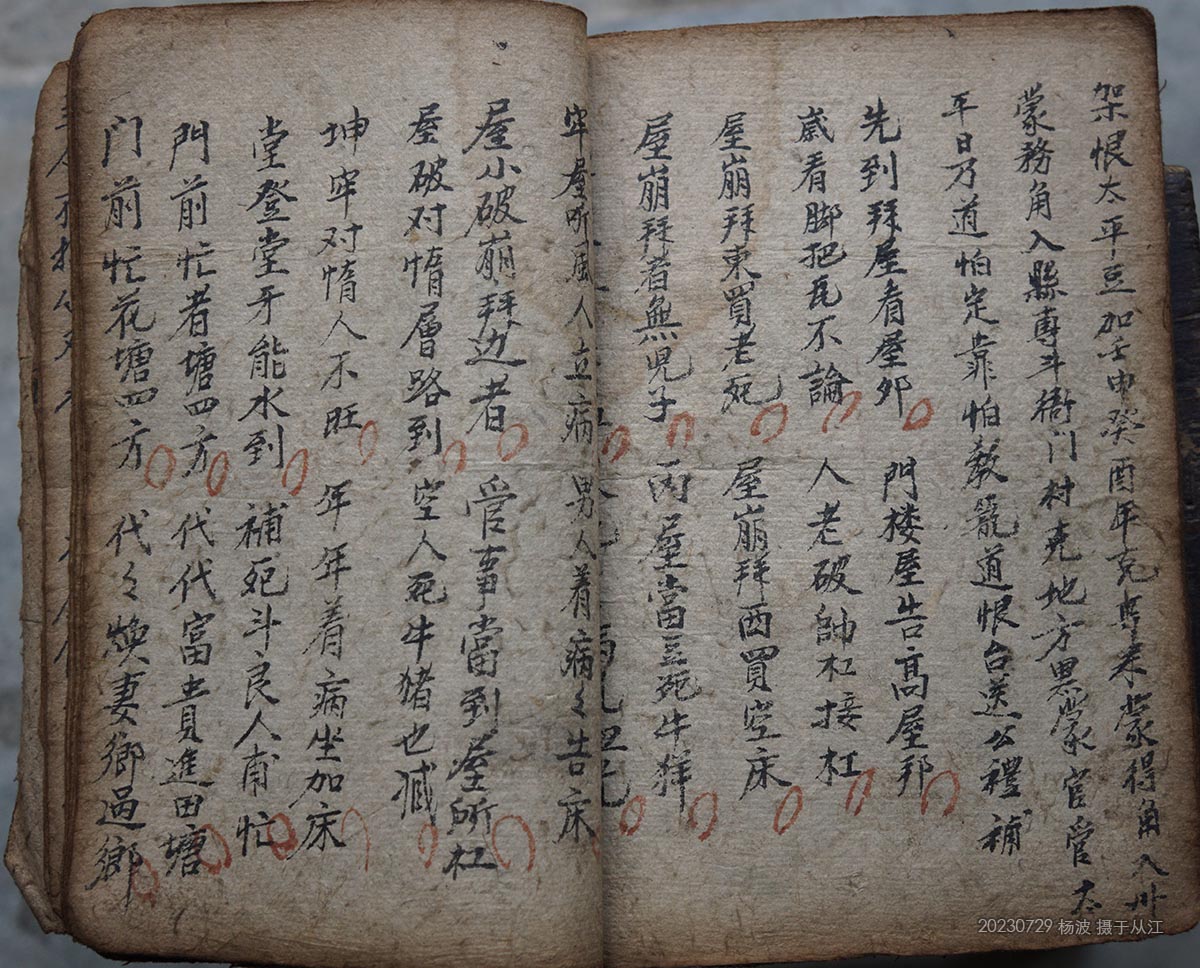 架恨太平豆加壬申癸酉年克專来蒙得角入卅
蒙務角入縣專斗衙门村克地方黑蒙官管太
平日乃道怕定靠怕籠道恨台送公禮補
先到拜屋看屋 門楼屋告高屋邦
歲看脚把瓦不論 人老破帥杠接杠
屋崩拜東買老死 屋崩拜西買空床
屋崩拜者無児子 丙屋當豆死牛羊
牢屋听風人立病 男人着病々告床
屋小破崩拜边者 管事當到屋所杠
屋破对惰層路到 空人死牛猪也减
坤牢对惰人不旺 年年着病坐加床
堂登堂牙能水到 補死斗良人甫忙
門前忙者塘四方 代代富贵進田塘
门前忙花塘四方 代々焕妻鄉過鄉
20230729 杨波 摄于从江